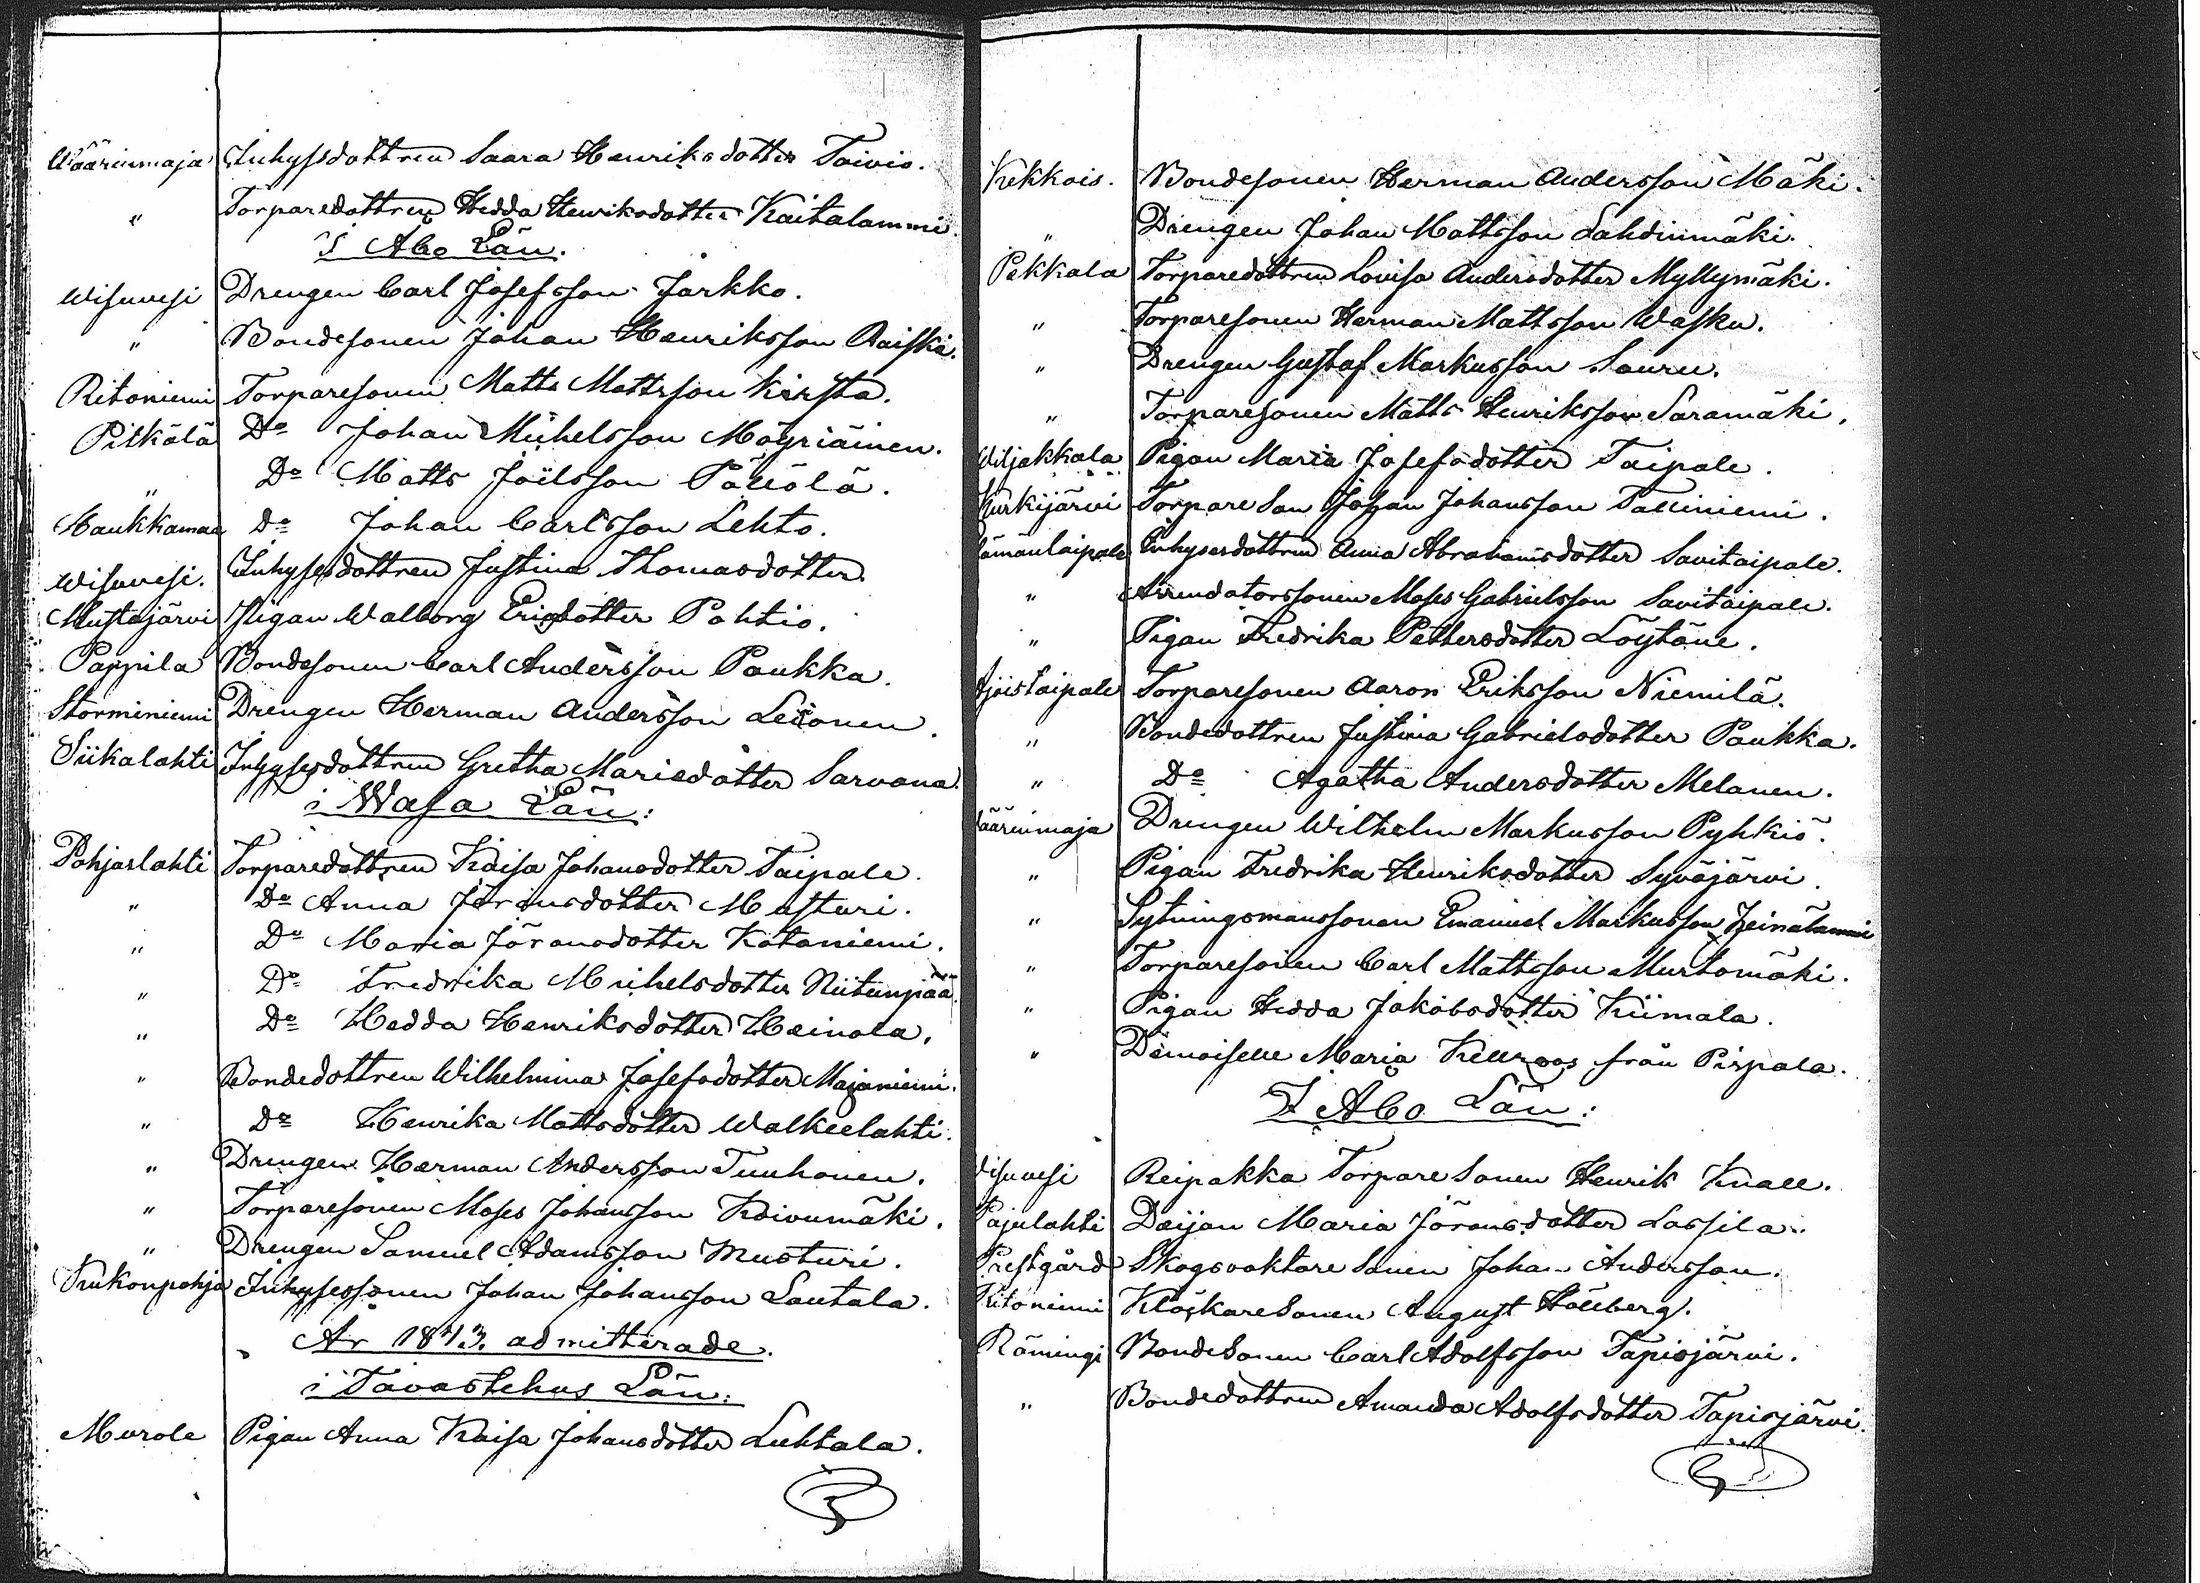 Wäärinmaja Inhysdottren Saara Henriksdotter Toivio.
" Torparedottren Hedda Henriksdotter Kaitalammi.
I Åbo Län.
Wisuvesi Drengen Carl Josefsson Jarkko.
" Bondesonen Johan Henriksson Raiski.
Ritoniemi Torparesonen Matts Mattsson Kirsta.
Pilkälä Do Johan Michelsson Mäyriäinen.
" Do Matts Joelsson Pällölä.
Haukkamaa Do Johan Carlsson Lehto.
Wisuvesi. Inhysesdottren Justina Thomasdotter
Mustajärvi Pigan Walborg Ericsdotter Pohtio.
Pappila Bondesonen Carl Andersson Paukka.
Storminiemi Drengen Herman Andersson Leionen.
Siikalahti Inhysesdottren Gretha Mariedotter Sarvana.
i Wasa Län:
Pohjaslahti Torparedottren Kaisa Johansdotter Taipale.
" Do Anna Jöransdotter Masturi.
" Do Maria Jöransdotter Kotaniemi.
" Do Fredrika Michelsdotter Niitunpää.
" Do Hedda Henriksdotter Heinola.
" Bondedottren Wilhelmina Josefsdotter Majaniemi.
" Do Henrika Mattsdotter Walkeelahti.
" Drengen Herman Andersson Tuuhonen.
" Torparesonen Moses Johansson Koivumäki.
" Drengen Samuel Adamsson Musturi.
Kukonpohja Inhysessonen Johan Johansson Lautala.
År 1873. admitterade.
i Tavastehus Län:
Murole Pigan Anna Kaisa Johansdotter Luhtala.
Kekkois. Bondesonen Herman Andersson Mäki.
" Drengen Johan Mattsson Lahdinmäki.
Pekkala Torparedottren Lovisa Andersdotter Myllymäki.
" Torparesonen Herman Mattsson Wasku.
" Drengen Gustaf Markusson Sauru.
" Torparesonen Matts Henriksson Saramäki.
Wiljakkala Pigan Maria Josefsdotter Taipale.
Kurkijärvi Torpare Son Johan Johansson Talliniemi.
Lämäntaipale Inhysesdottren Anna Abrahamsdotter Savitaipale.
" Arrendatorssonen Moses Gabrielsson Savitaipale.
" Pigan Fredrika Pettersdotter Löytäne.
Ajöistaipale Torparesonen Aaron Eriksson Niemilä.
" Bondedottren Justina Gabrielsdotter Paukka.
" Do Agatha Andersdotter Melanen.
Wäärinmaja Drengen Wilhelm Markusson Pyhkiö.
" Pigan Fredrika Henriksdotter Syväjärvi.
" Sytningsmanssonen Emanuel Markusson Heinälammi
" Torparesonen Carl Mattsson Murtomäki.
" Pigan Hedda Jakobsdotter Kiimala.
" Demoiselle Maria Kellroos från Pirpala.
I Åbo Län:
Visuvesi Reipakka Torpare Sonen Henrik Knall.
Pajulahti Deijan Maria Jöransdotter Lassila.
Prestgård Skogsvaktare Sonen Johan Andersson.
Ritoniemi Klåckare Sonen August Hällberg.
Rämingi Bonde Sonen Carl Adolfsson Tapiojärvi.
" Bondedottren Amanda Adolfsdotter Tapiojärvi.